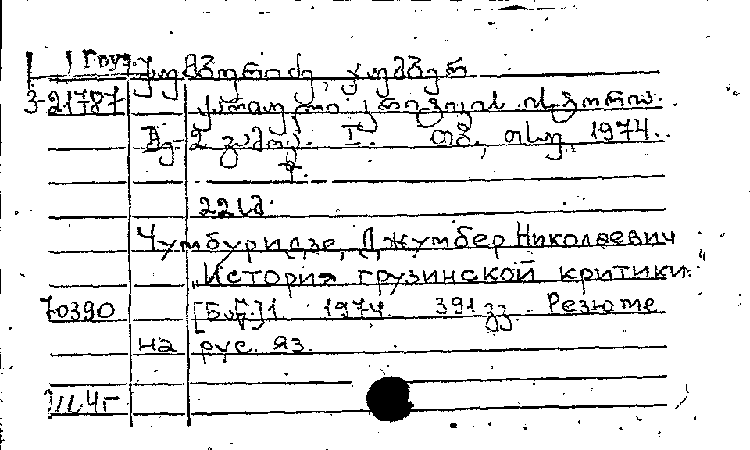 Груз.
ჭუმბურიძე, ჯუმბერ
3-21787 ქართული კრიტიკის ისტორია.
მე-2 გამოც. I. თბ., თსუ, 1974.
Чумбуридзе, Джумбер Николаевич
"История грузинской критики."
70390 1974 391 გვ. Резюме
на рус. яз.